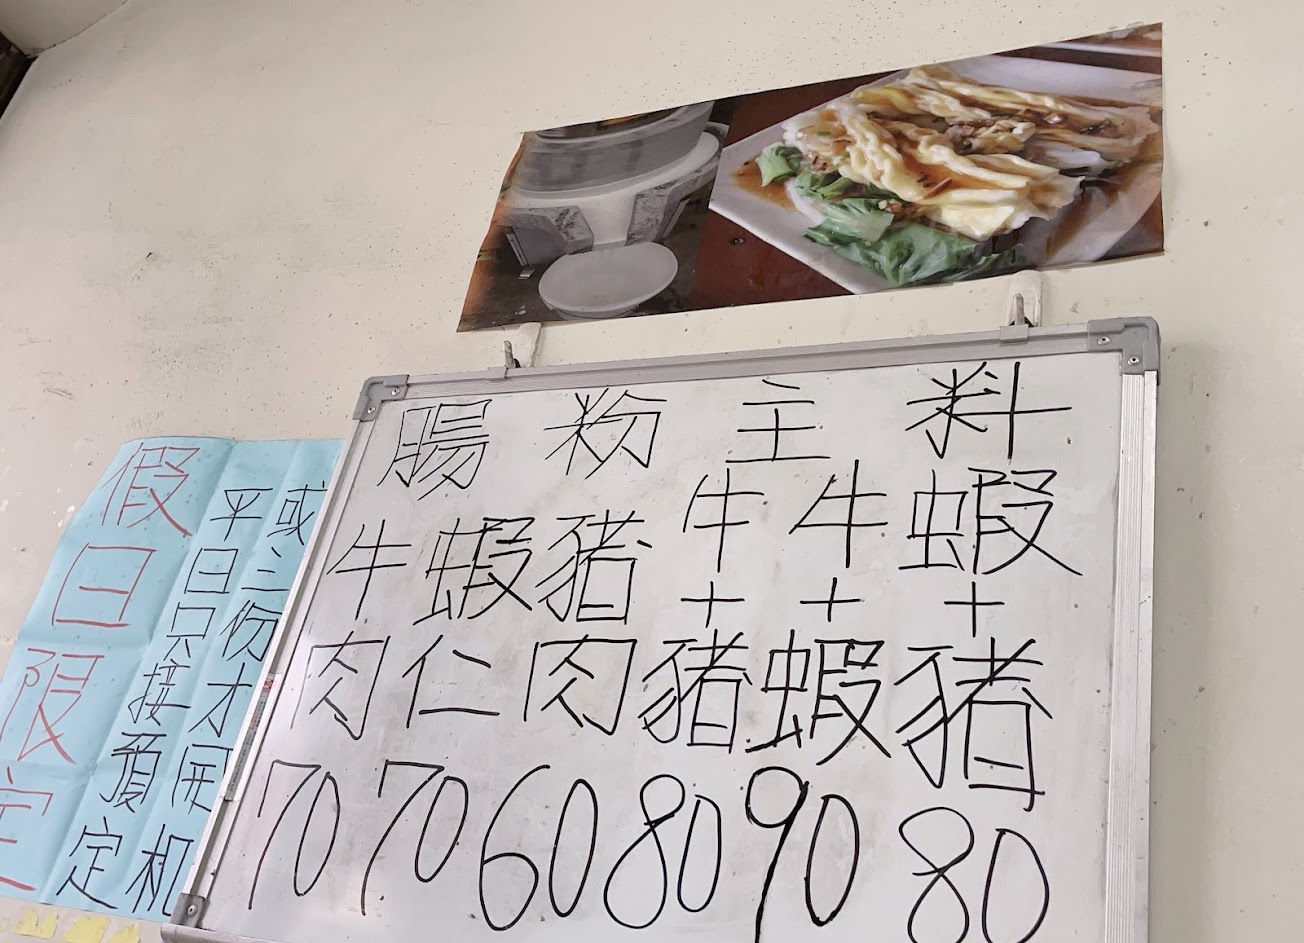 腸粉主料
牛肉70
蝦仁70
豬肉60
牛+豬80
牛+蝦90
蝦+豬80
假日限定
平日只接預定
或三份才開机